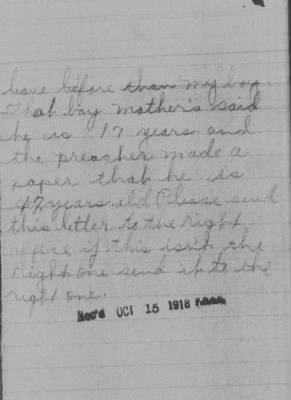 leave before than my boy.
That boy mother's said
he is 17 years and
the preacher made a
paper that he is
47 years old Please send
this letter to the right
office if this isn't the
right one send it to the
right one.
Rec'd OCT 15 1918